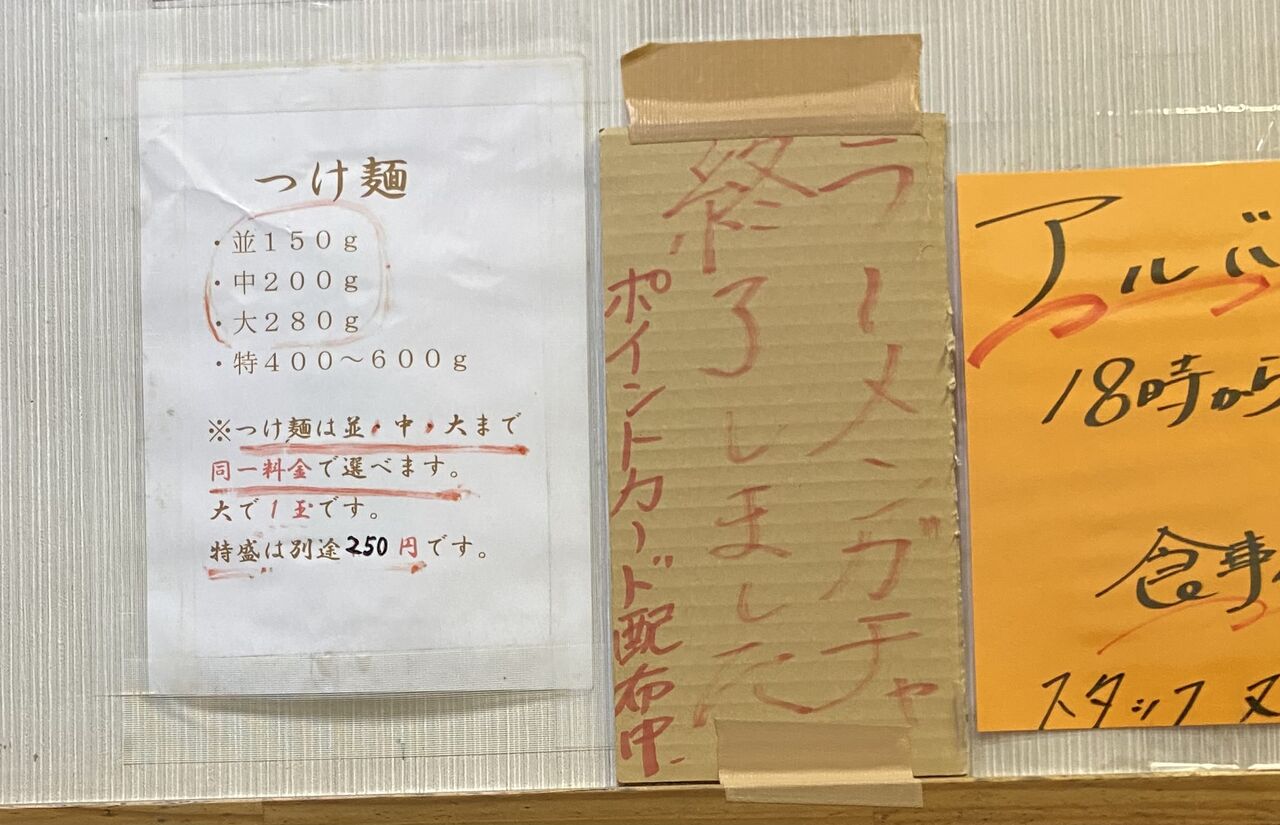 つけ麺
・並１５０ｇ
・中２００ｇ
・大２８０ｇ
・特４００～６００ｇ
※つけ麺は並・中・大まで
同一料金で選べます。
大で１玉です。
特盛は別途250円です。
ラーメンガチャ
終了しました
ポイントカード配布中.
アルバ
18時から
食事
スタッフ